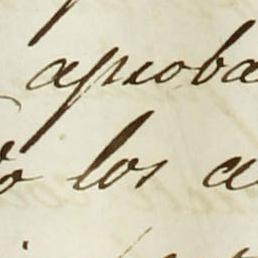 aproba
o los a